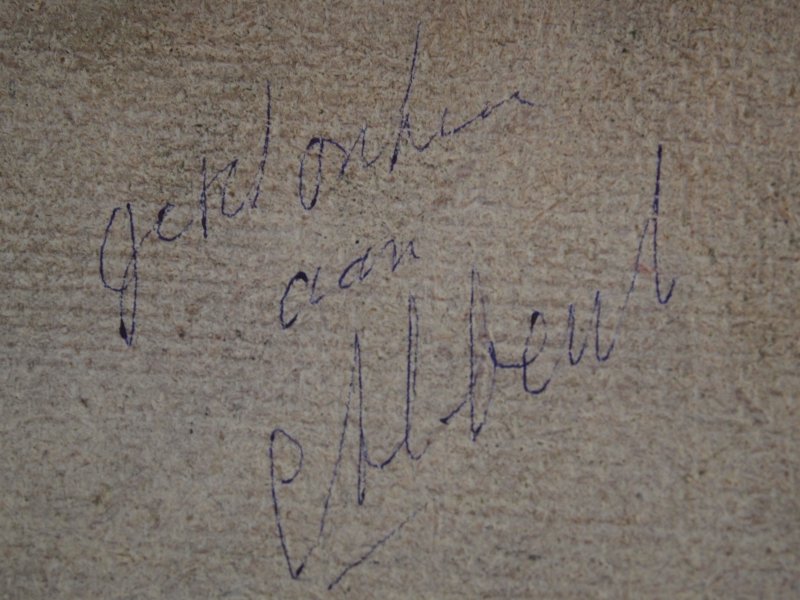 geklonken
aan
Albert